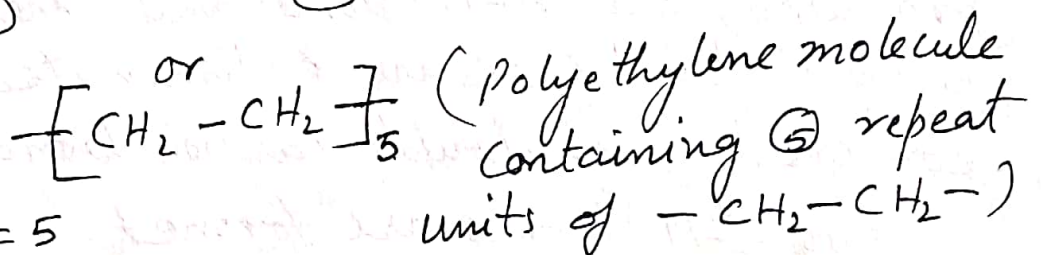 or
-[CH₂-CH₂]-₅ (Polyethylene molecule
containing ⑤ repeat
= 5 units of -CH₂-CH₂-)